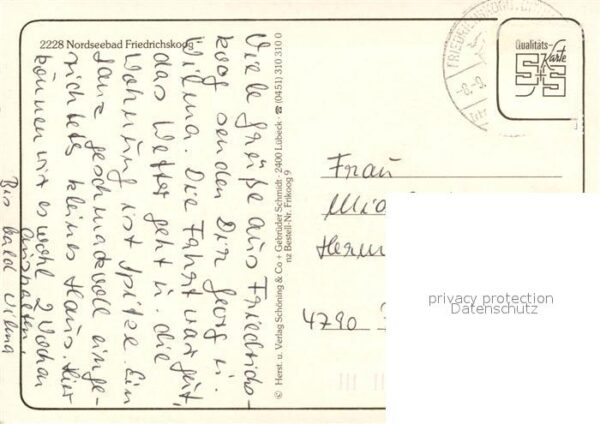 2228 Nordseebad Friedrichskoog
Viele Grüße aus Friedrichs-
koog senden Dir Georg u.
Wilma. Die Fahrt war gut,
das Wetter geht u. die
Wohnung ist Spitze. Ein
ganz geschmackvoll einge-
richtetes kleines Haus. Hier
können wir es wohl 2 Wochen
aushalten.
Bis bald Wilma
© Herst. u. Verlag Schöning & Co + Gebrüder Schmidt · 2400 Lübeck · ☎ (0451) 310 310 0
nz Bestell-Nr. Frikoog 9
FRIEDRICHSKOOG
-8.-9.
Qualitäts-
Karte
S+S
Frau
4790
privacy protection
Datenschutz